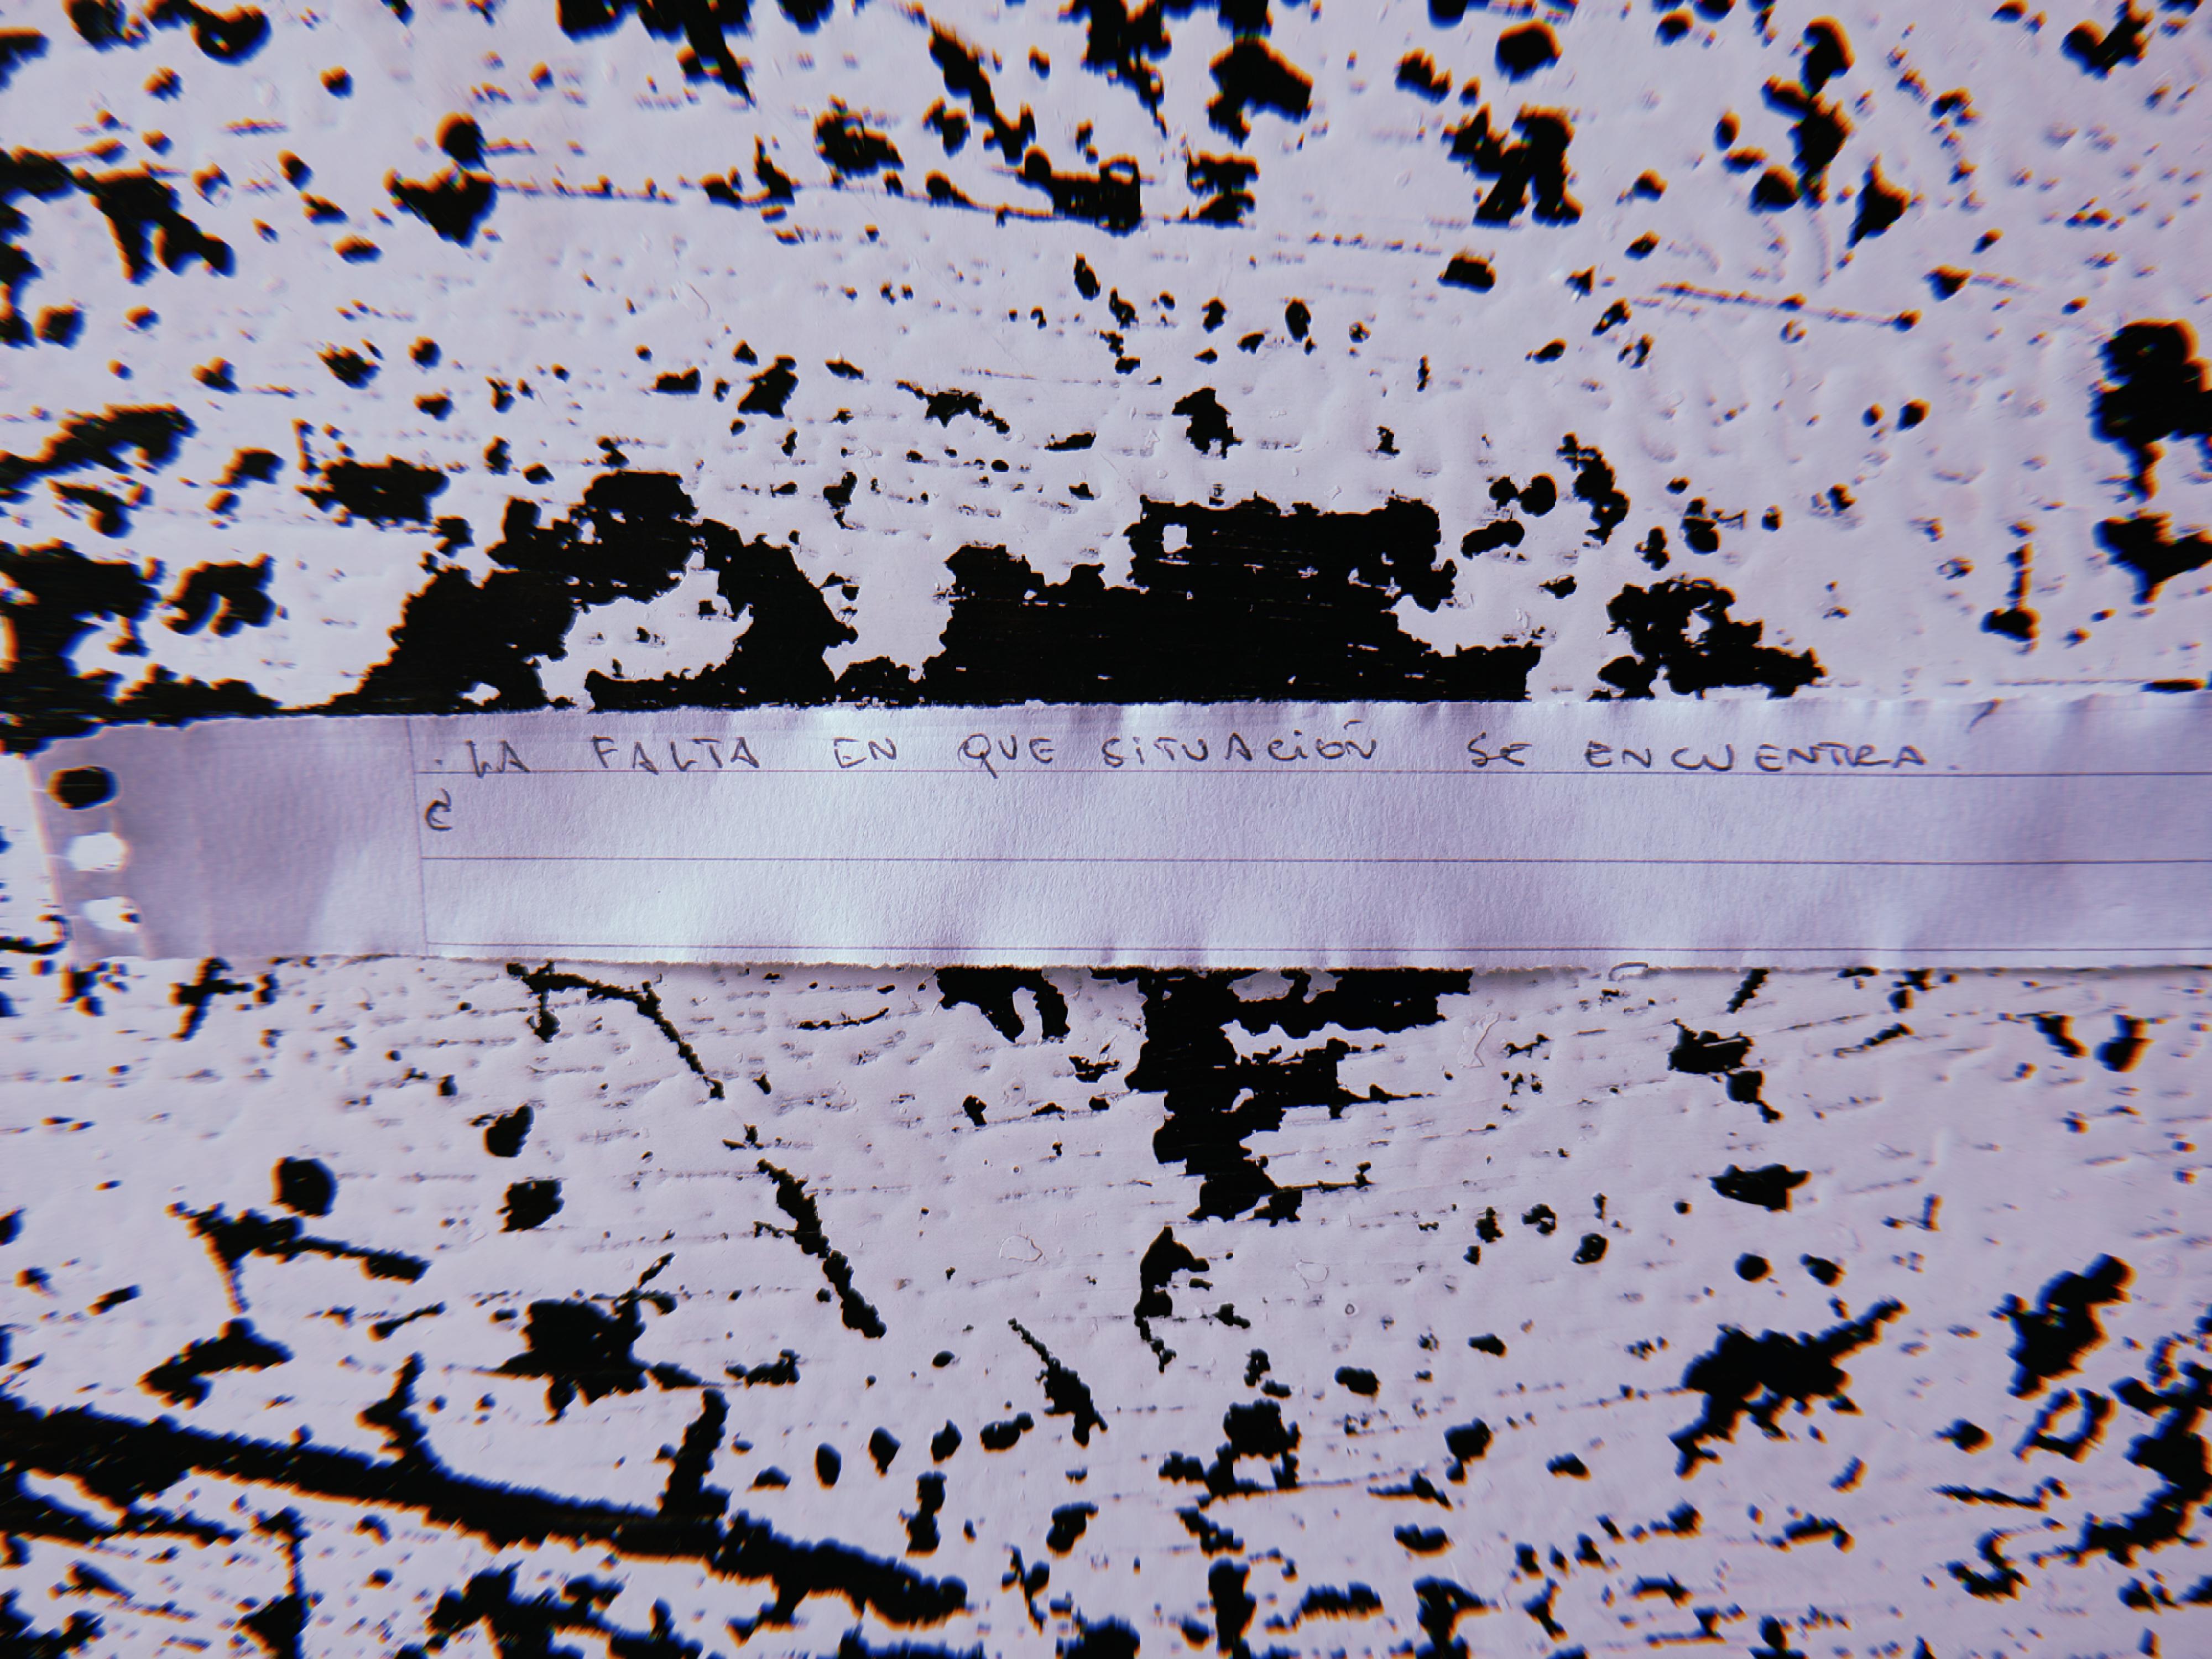 . LA FALTA EN QUE SITUACIÓN SE ENCUENTRA.